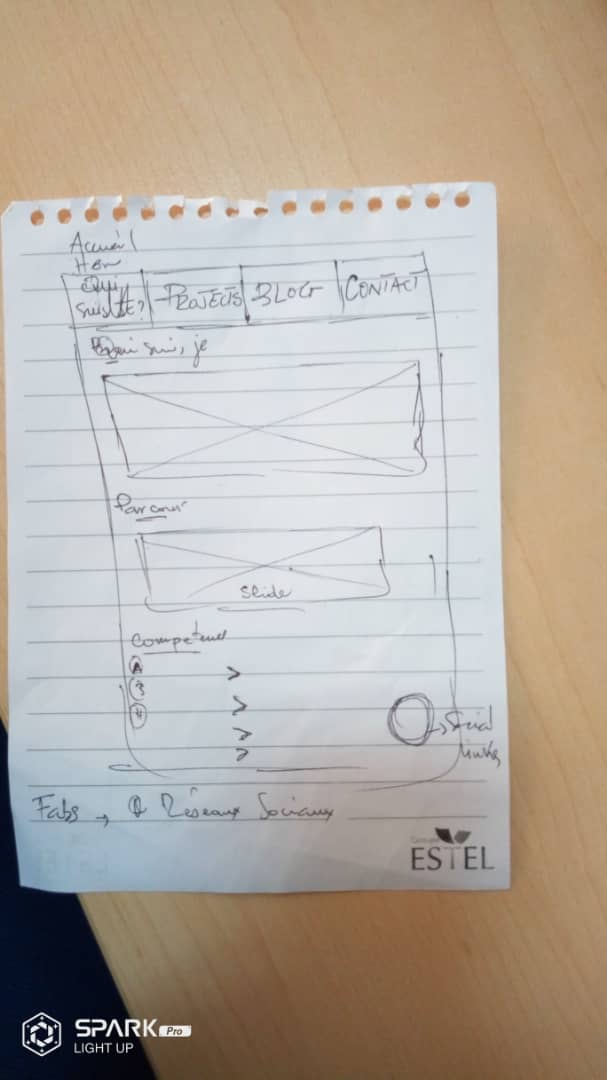 Accueil
Qui
suis JE?
PROJECTS
BLOG
CONTACT
Qui suis je
Parcours
Slide
Competences
A
>
B
>
>
>
Social
links
Fabs → Réseaux Sociaux
Groupe
ESTEL
SPARK Pro
LIGHT UP